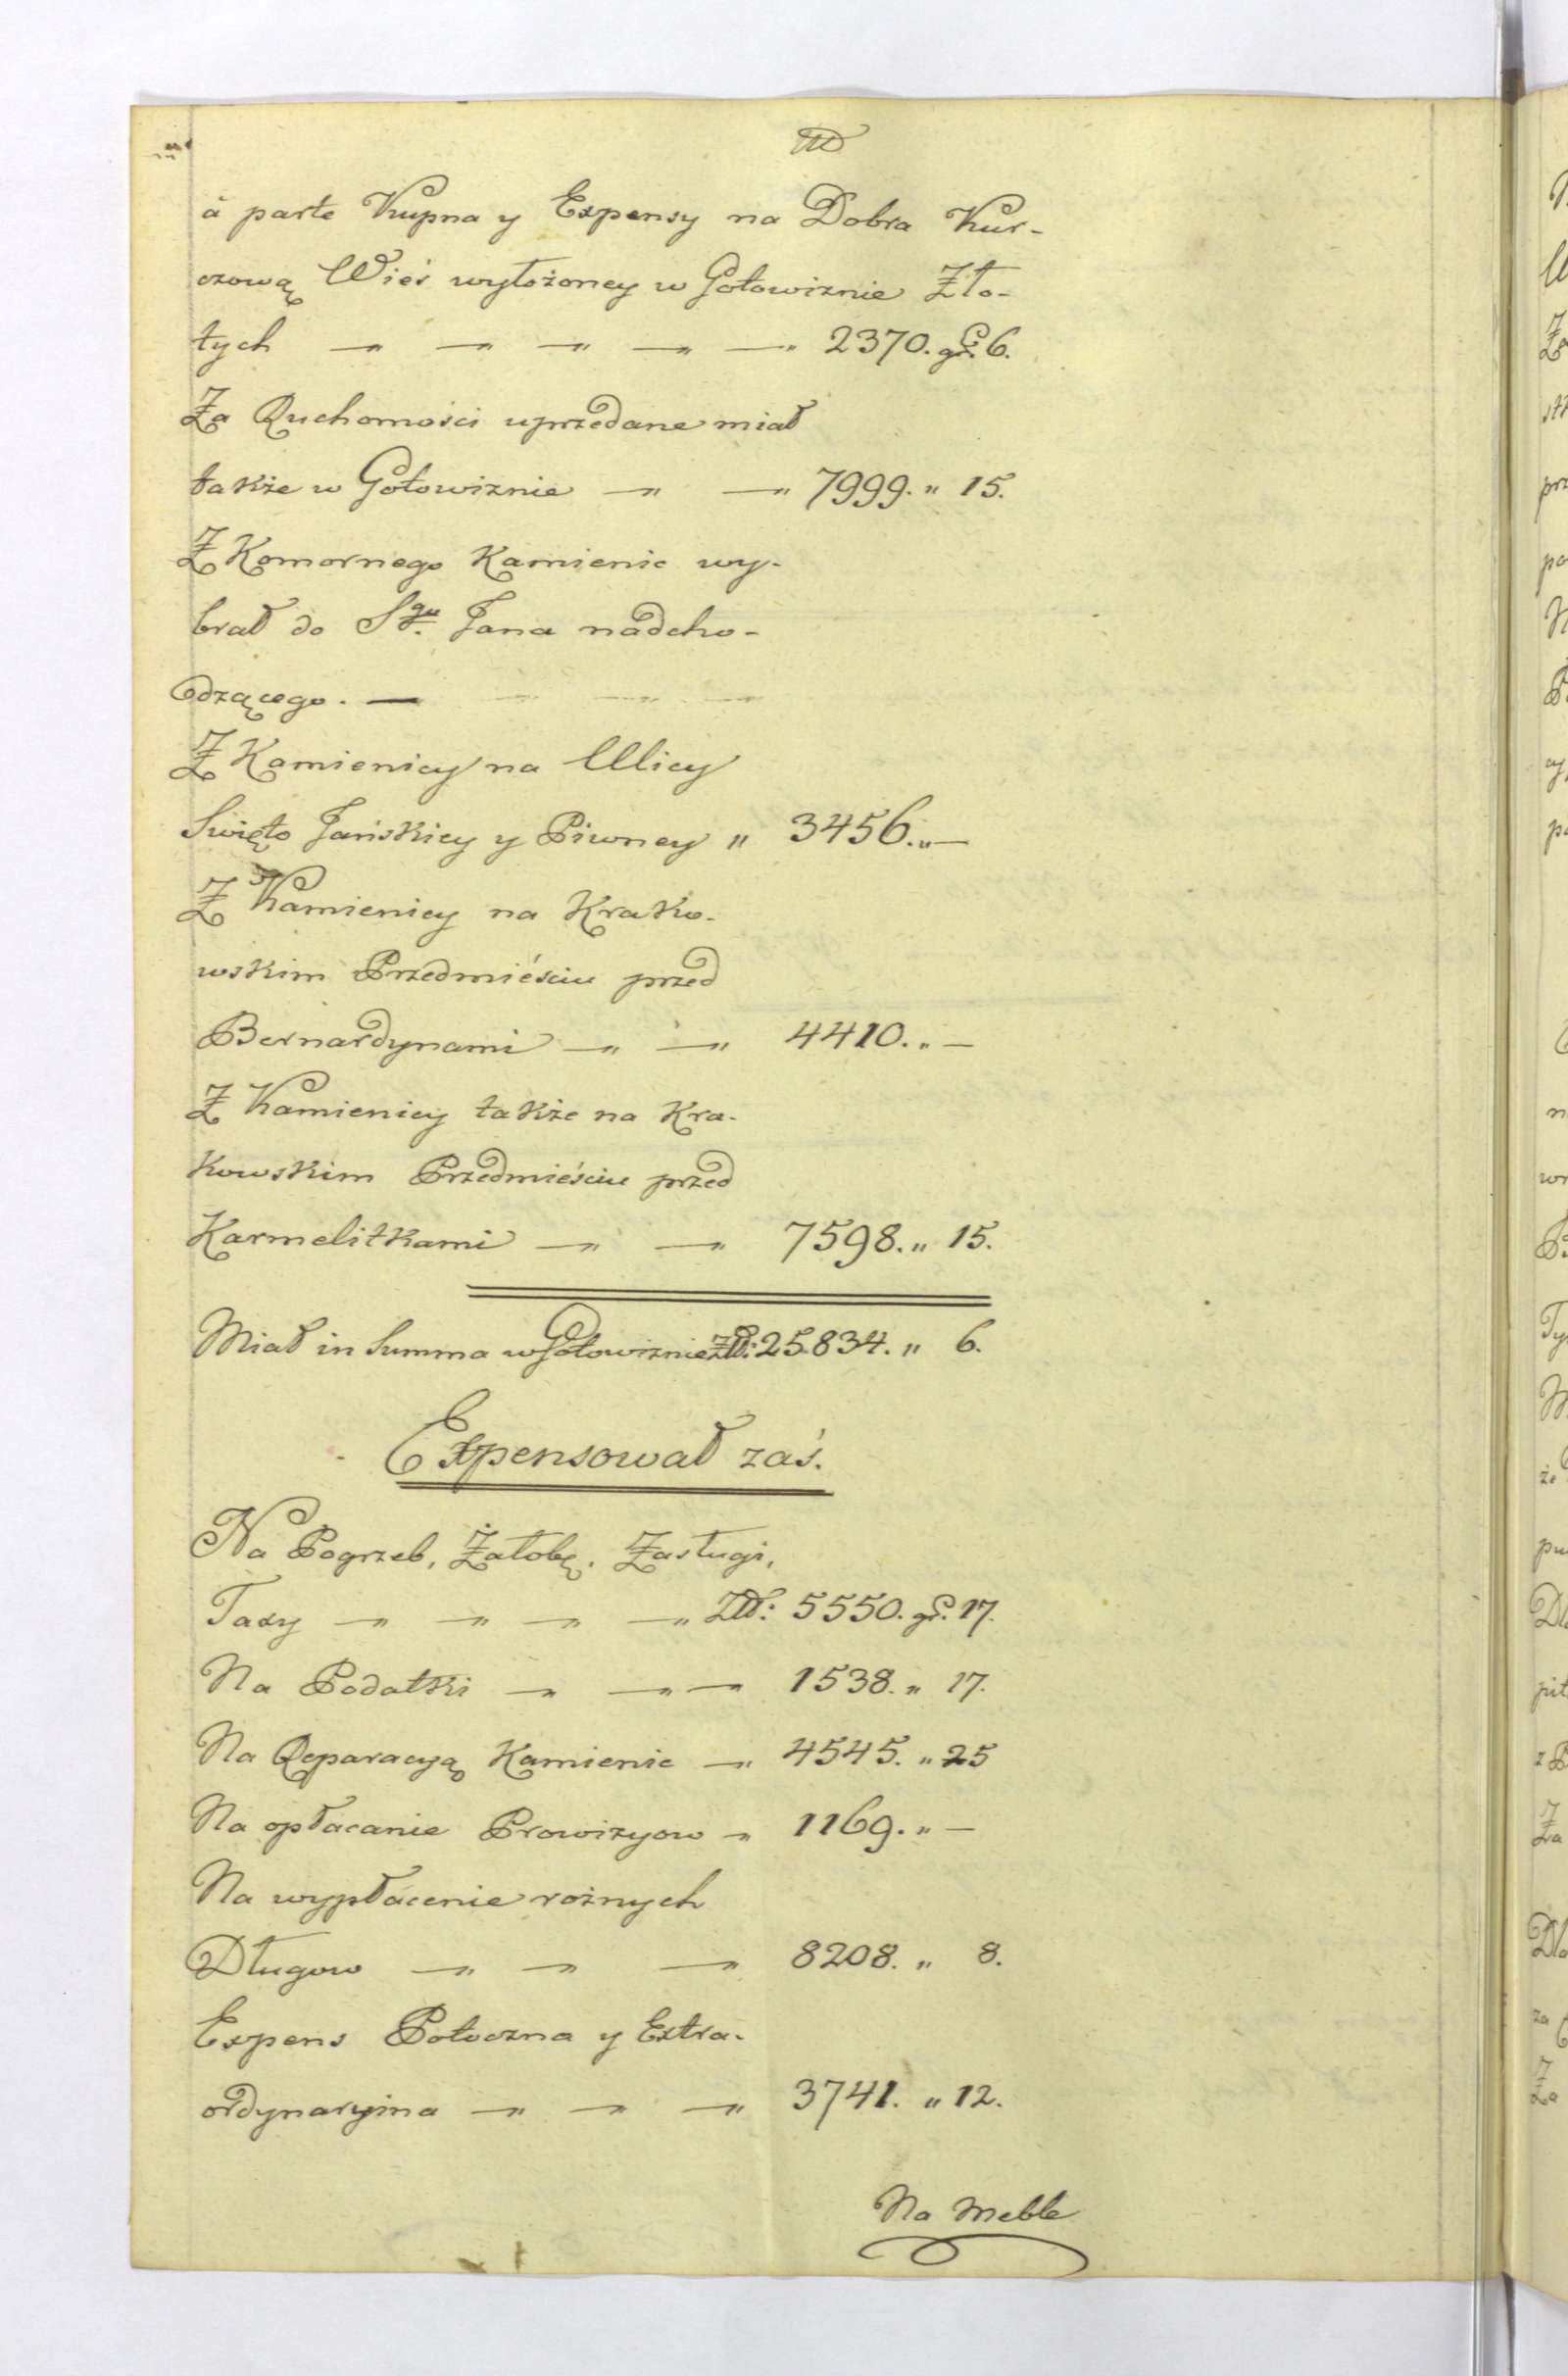 à parte Kupna y Expensy na Dobra Kur-
czową Wieś wyłożoney w Gotowiznie Zło-
tych — — — — — 2370. gr. 6.
Za Ruchomości uprzedane miał
także w Gotowiznie — — 7999. " 15.
Z Komornego Kamienic wy-
brał do Sgo. Jana nadcho-
dzącego. — — — —
Z Kamienicy na Ulicy
Swięto Jańskiey y Piwney " 3456. " —
Z Kamienicy na Krako-
wskim Przedmieściu przed
Bernardynami — — 4410. " —
Z Kamienicy także na Kra-
kowskim Przedmieściu przed
Karmelitkami — — 7598. " 15.
Miał in Summa w Gotowiznie Złł: 25834. " 6.
Expensował zaś.
Na Pogrzeb, Żałobę, Zasługi,
Taxy — — — — Złł: 5550. gr. 17.
Na Podatki — — — 1538. " 17.
Na Reparacyą Kamienic — 4545. " 25
Na opłacanie Prowizyow — 1169. " —
Na wypłacenie rożnych
Długow — — — 8208. " 8.
Expens Potoczna y Extra-
ordynaryina — — — 3741. " 12.
Na Meble